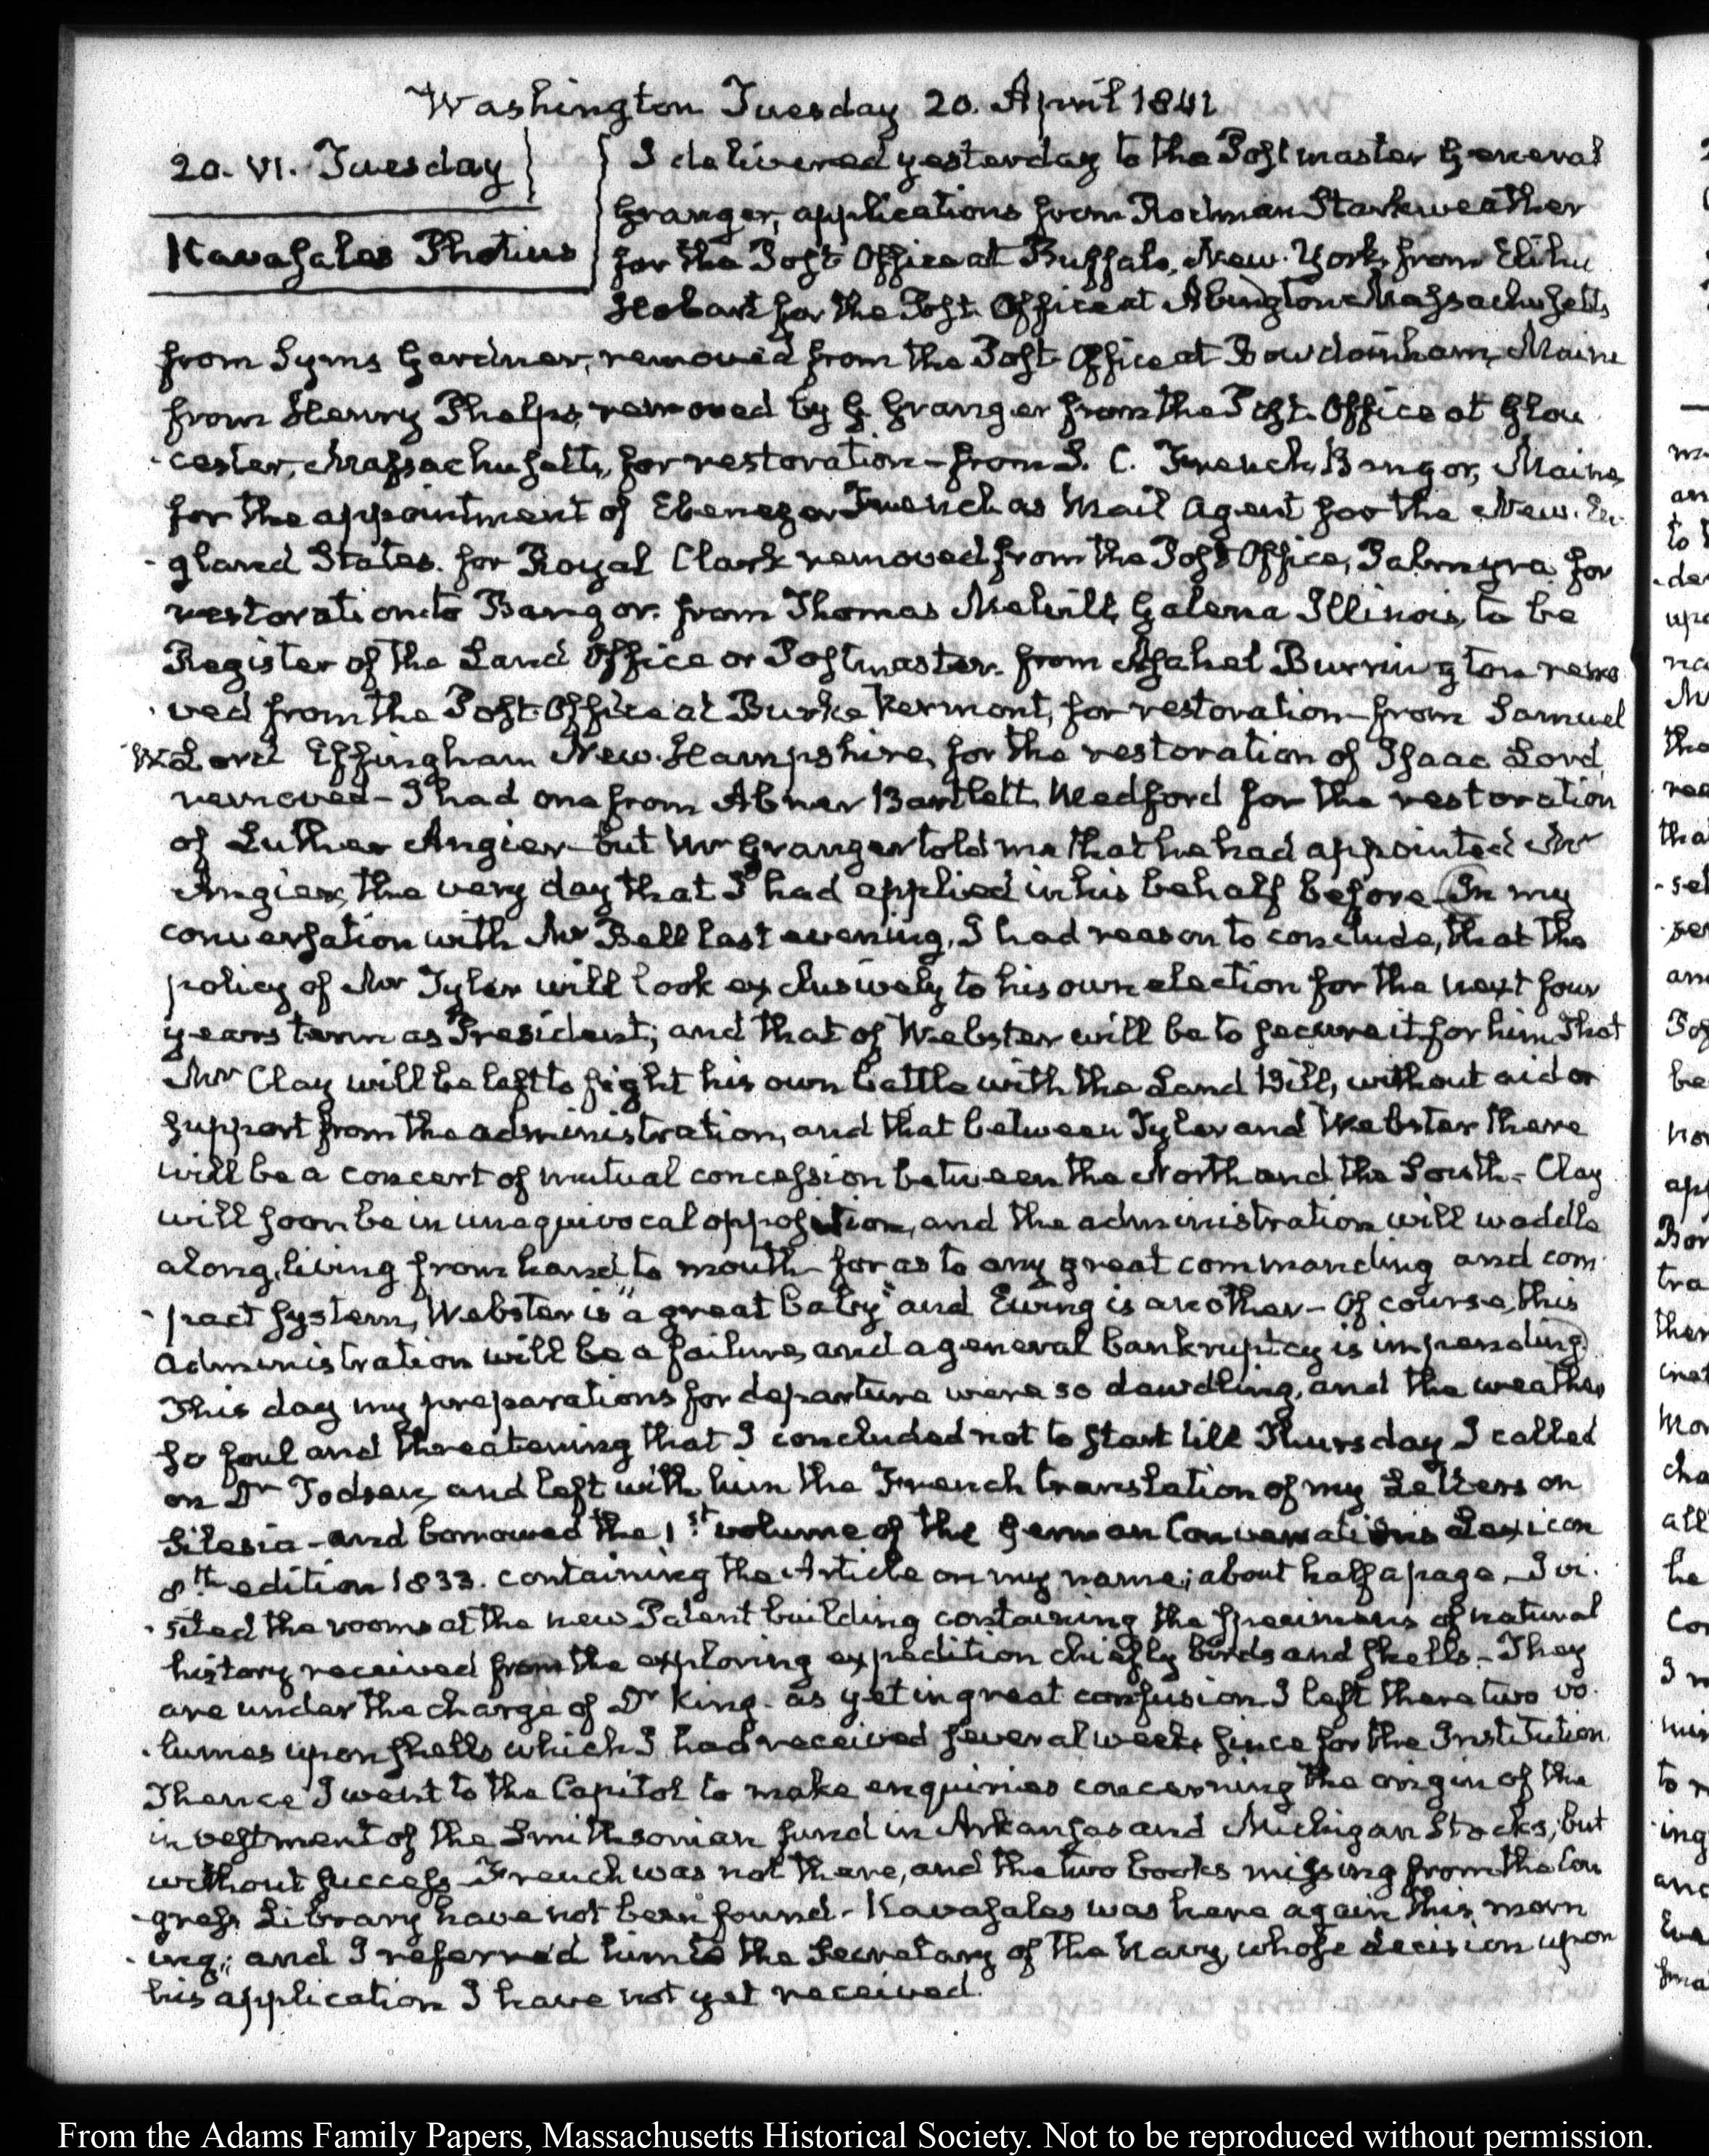 Washington Tuesday 20. April 1841
20. VI. Tuesday
Kavasales Photius
I delivered yesterday to the Postmaster General
Granger, applications from Rodman Starkweather
for the Post Office at Buffalo, New-York, from Elihu
Hobart for the Post Office at Abington Massachusetts
from Syms Gardner, removed from the Post-Office at Bowdoinham, Maine
from Henry Phelps, removed by G. Granger from the Post-Office at Glou
-cester, Massachusetts, for restoration—from S. C. French, Bangor, Maine,
for the appointment of Ebenezer French as Mail Agent for the New-En-
-gland States. for Royal Clark removed from the Post Office, Palmyra for
restoration to Bangor. from Thomas Melvill, Galena Illinois, to be
Register of the Land Office or Postmaster. from Asahel Burrington remo
-ved from the Post-Office at Burke Vermont, for restoration—from Samuel
W. Lord Effingham New-Hampshire, for the restoration of Isaac Lord,
removed—I had one from Abner Bartlett, Medford for the restoration
of Luther Angier—but Mr Granger told me that he had appointed Mr
Angier, the very day that I had applied in his behalf before—In my
conversation with Mr Bell last evening, I had reason to conclude, that the
policy of Mr Tyler will look exclusively to his own election for the next four
years term as President; and that of Webster will be to secure it for him. That
Mr Clay will be left to fight his own battle with the Land Bill, without aid or
support from the administration, and that between Tyler and Webster there
will be a concert of mutual concession between the North and the South—Clay
will soon be in unequivocal opposition, and the administration will waddle
along, living from hand to mouth—for as to any great commanding and com-
-pact system, Webster is "a great baby" and Ewing is another—Of course, this
administration will be a failure, and a general bankruptcy is impending
This day my preparations for departure were so dawdling, and the weather
so foul and threatening that I concluded not to start till Thursday. I called
on Dr Todsen, and left with him the French translation of my Letters on
Silesia—and borrowed the 1st volume of the German Conversations Lexicon
8th edition 1833. containing the Article on my name; about half a page. I vi-
-sited the rooms at the new Patent building containing the specimens of natural
history received from the exploring expedition chiefly birds and shells—They
are under the charge of Dr King—as yet in great confusion. I left there two vo-
-lumes upon shells which I had received several weeks since for the Institution
Thence I went to the Capitol to make enquiries concerning the origin of the
investment of the Smithsonian fund in Arkansas and Michigan Stocks; but
without success—French was not there, and the two books missing from the Con
-gress Library have not been found—Kavasales was here again this morn
-ing; and I referred him to the Secretary of the Navy, whose decision upon
his application I have not yet received.
From the Adams Family Papers, Massachusetts Historical Society. Not to be reproduced without permission.